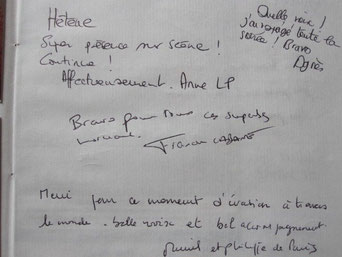 Hélène
Super présence sur scène !
Continue !
Affectueusement. Anne LP
Quelle voix !
j'ai voyagé toute la
soirée ! Bravo
Agnès
Bravo pour tous ces superbes
Merci pour ce moment d'évasion à travers
le monde. belle voix et bel accompagnement
et philippe de